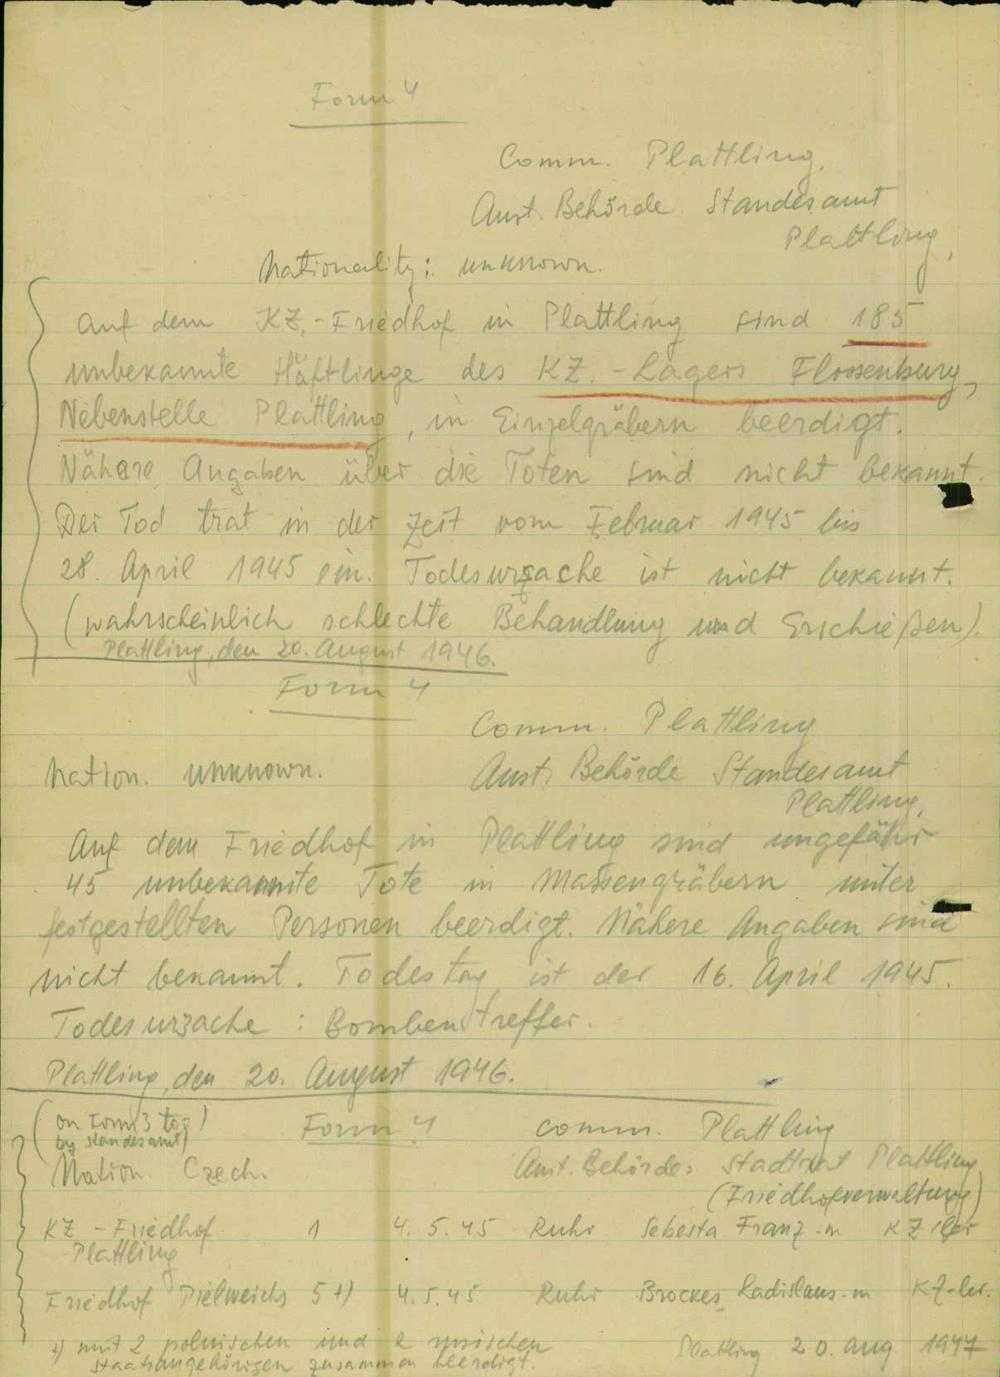 Form 4
Comm. Plattling,
Amt. Behörde Standesamt
Plattling,
Nationality: unknown.
Auf dem KZ.-Friedhof in Plattling sind 185
unbekannte Häftlinge des KZ.-Lagers Flossenburg,
Nebenstelle Plattling, in Einzelgräbern beerdigt.
Nähere Angaben über die Toten sind nicht bekannt.
Der Tod trat in der Zeit vom Februar 1945 bis
28. April 1945 ein. Todesursache ist nicht bekannt.
(wahrscheinlich schlechte Behandlung und Erschießen).
Plattling, den 20. August 1946.
Form 4
Comm. Plattling
Nation. unknown. Amt. Behörde Standesamt
Plattling,
Auf dem Friedhof in Plattling sind ungefähr
45 unbekannte Tote in Massengräbern unter
festgestellten Personen beerdigt. Nähere Angaben sind
nicht bekannt. Todestag ist der 16. April 1945.
Todesursache: Bombentreffer.
Plattling, den 20. August 1946.
(on Form 3 too) Form 4 Comm. Plattling
by Standesamt)
Nation. Czech. Amt. Behörde: Stadtrat Plattling
(Friedhofverwaltung)
KZ-Friedhof 1 4.5.45 Ruhr Sebesta Franz-m KZ ler
Plattling
Friedhof Pielweichs 5+) 4.5.45 Ruhr Brockes Ladislaus-m KZ-ler.
+) mit 2 polnischen und 2 russischen Plattling 20. Aug 1947
Staatsangehörigen zusammen beerdigt.